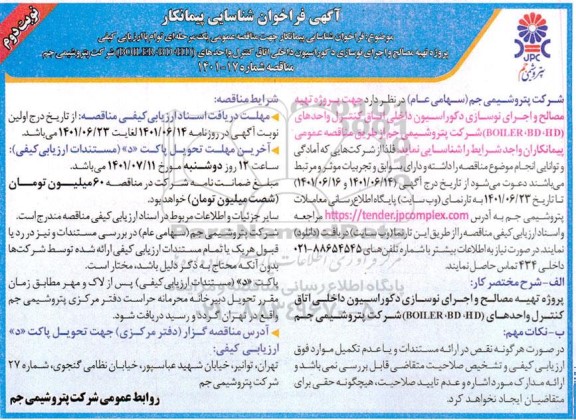 نوبت دوم
آگهی فراخوان شناسایی پیمانکار
موضوع: فراخوان شناسایی پیمانکار جهت مناقصه عمومی یک مرحله‌ای توأم با ارزیابی کیفی
پروژه تهیه مصالح و اجرای نوسازی دکوراسیون داخلی اتاق کنترل واحدهای (BOILER-BD-HD) شرکت پتروشیمی جم
مناقصه شماره ۱۷-۱۴۰۱
JPC
پتروشیمی جم
شرکت پتروشیمی جم (سهامی عام) در نظر دارد جهت پروژه تهیه
مصالح و اجرای نوسازی دکوراسیون داخلی اتاق کنترل واحدهای
(BOILER-BD-HD) شرکت پتروشیمی جم از طریق مناقصه عمومی
پیمانکاران واجد شرایط را شناسایی نماید. لذا از شرکت‌هایی که آمادگی
و توانایی انجام موضوع مناقصه را داشته و دارای سوابق و تجربیات موثر و مرتبط
می‌باشند دعوت می‌شود از تاریخ درج آگهی (۱۴۰۱/۰۶/۱۴ و ۱۴۰۱/۰۶/۱۶)
تا تاریخ ۱۴۰۱/۰۶/۲۳ به تارنمای (وب‌سایت) پایگاه اطلاع رسانی معاملات
پتروشیمی جم به آدرس https://tender.jpcomplex.com مراجعه
و اسناد ارزیابی کیفی مناقصه را از طریق این تارنمای دریافت (دانلود)
نمایند. در صورت نیاز به اطلاعات بیشتر با شماره تلفن‌های ۸۸۶۵۴۵۴۵-۰۲۱
داخلی ۴۳۴ تماس حاصل نمایند.
الف-شرح مختصر کار:
پروژه تهیه مصالح و اجرای نوسازی دکوراسیون داخلی اتاق
کنترل واحدهای (BOILER-BD-HD) شرکت پتروشیمی جم
ب-نکات مهم:
در صورت هرگونه نقص در ارائه مستندات و یا عدم تکمیل موارد فوق
ارزیابی کیفی و تشخیص صلاحیت متقاضی قابل بررسی نمی‌باشد و
ارائه مدارک مورد اشاره و عدم تایید صلاحیت، هیچگونه حقی برای
متقاضیان ایجاد نخواهد کرد.
شرایط مناقصه:
مهلت دریافت اسناد ارزیابی کیفی مناقصه: از تاریخ درج اولین
نوبت آگهی در روزنامه ۱۴۰۱/۰۶/۱۴ لغایت ۱۴۰۱/۰۶/۲۳ می‌باشد.
آخرین مهلت تحویل پاکت «د» (مستندات ارزیابی کیفی):
ساعت ۱۳ روز دوشنبه مورخ ۱۴۰۱/۰۷/۱۱ می‌باشد.
مبلغ ضمانت نامه شرکت در مناقصه ۶۰ میلیون تومان
(شصت میلیون تومان) خواهد بود.
سایر جزئیات و اطلاعات مربوط در اسناد ارزیابی کیفی مناقصه مندرج است.
شرکت پتروشیمی جم (سهامی عام) در بررسی مستندات و نیز در رد یا
قبول هر یک یا تمام مستندات ارزیابی کیفی ارائه شده توسط شرکت‌ها
بدون آنکه محتاج به ذکر دلیل باشد، مختار است.
پاکت «د» (مستندات ارزیابی کیفی) پس از لاک و مهر مطابق زمان
مقرر تحویل دبیرخانه محرمانه حراست دفتر مرکزی پتروشیمی جم
واقع در تهران گردد و رسید دریافت شود.
آدرس مناقصه گزار (دفتر مرکزی) جهت تحویل پاکت «د»
ارزیابی کیفی:
تهران، توانیر، خیابان شهید عباسپور، خیابان نظامی گنجوی، شماره ۲۷
شرکت پتروشیمی جم
روابط عمومی شرکت پتروشیمی جم